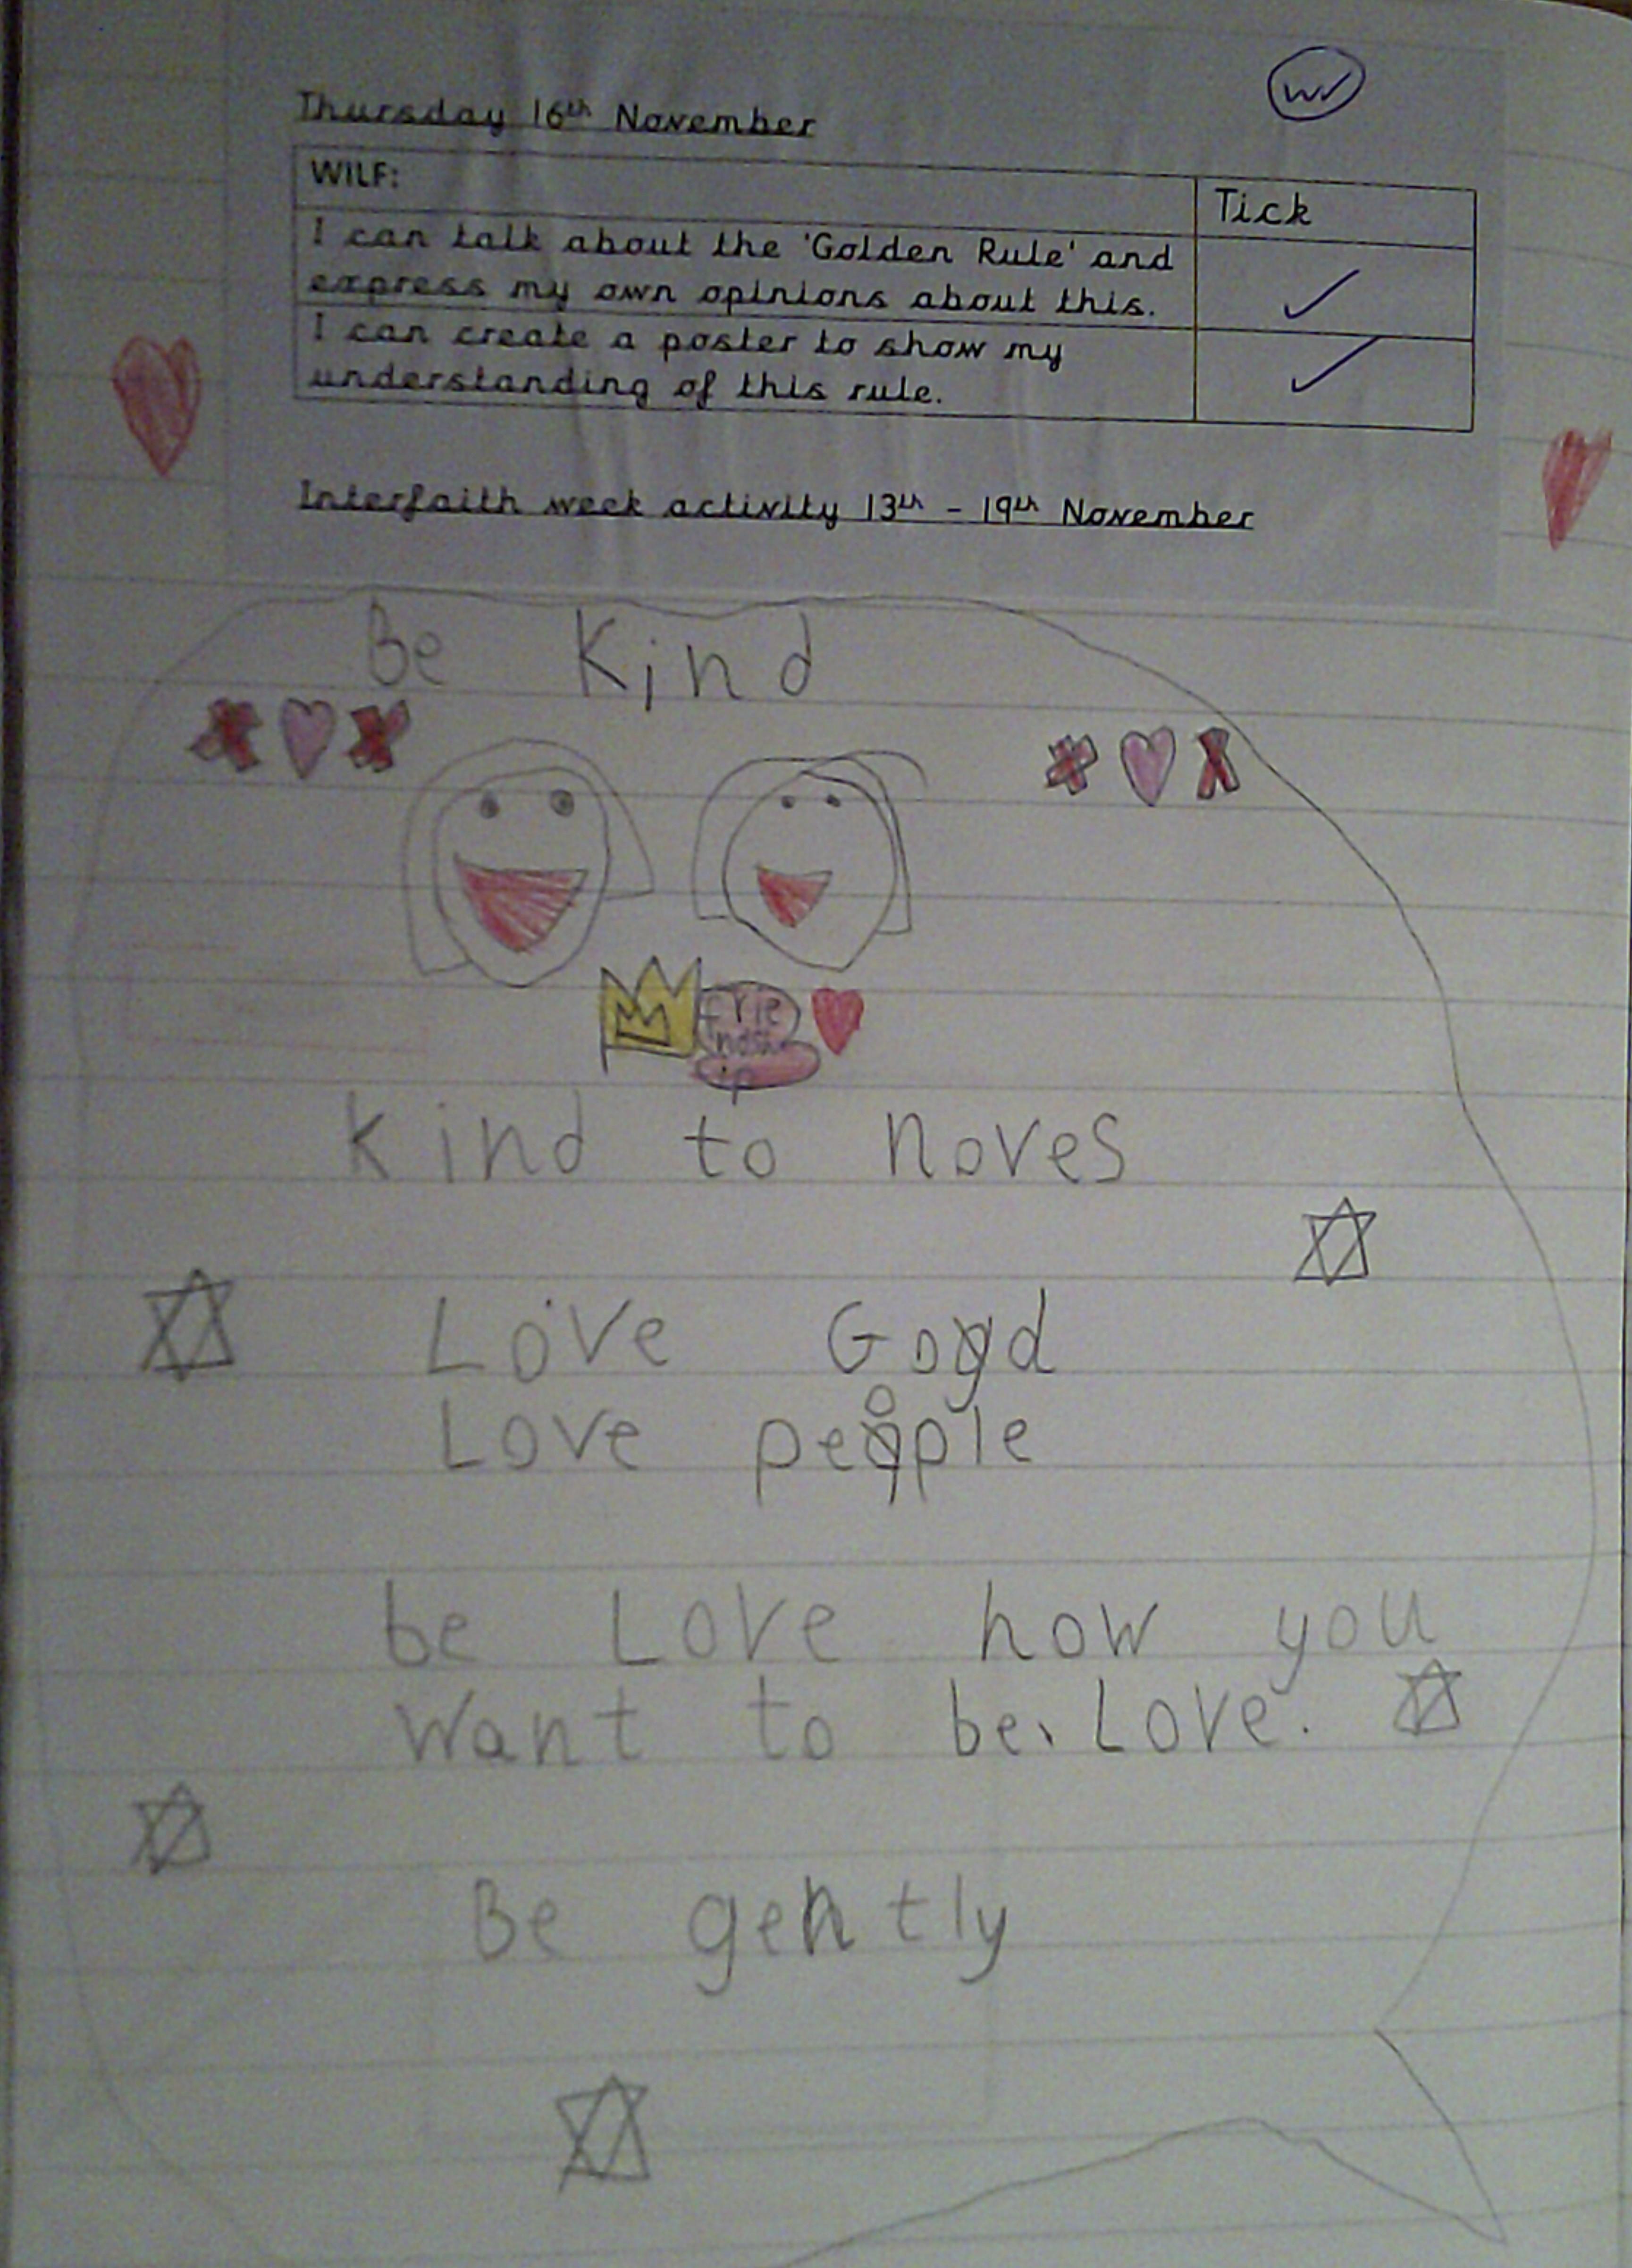 W
Thursday 16th November
WILF:
Tick
I can talk about the 'Golden Rule' and
express my own opinions about this.
I can create a poster to show my
understanding of this rule.
Interfaith week activity 13th - 19th November
Be Kind
frie
ndsh
ip
Kind to noves
Love God
Love people
be Love how you
want to be. Love.
Be gently